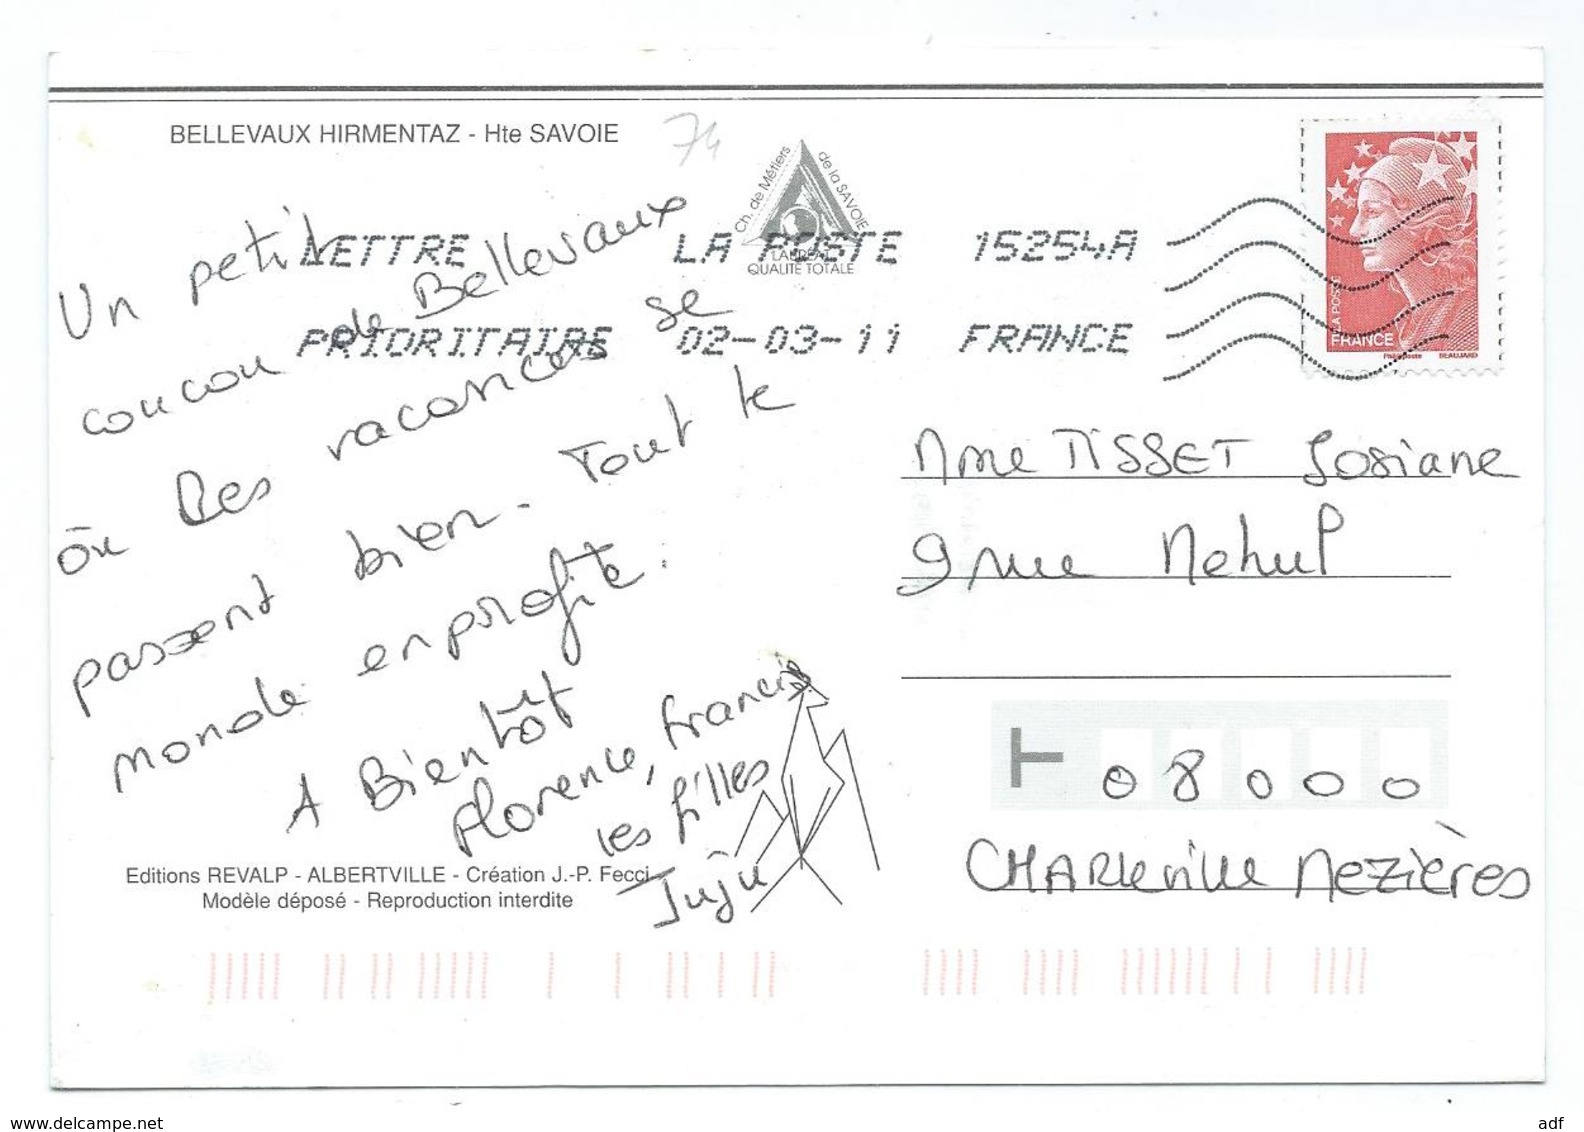 BELLEVAUX HIRMENTAZ - Hte SAVOIE
74
Ch. de Métiers
de la SAVOIE
LAUREAT
QUALITE TOTALE
LETTRE LA POSTE 15254A
PRIORITAIRE 02-03-11 FRANCE
LA POSTE
FRANCE
Phil@poste BEAUJARD
Un petit
coucou de Bellevaux
où les vacances se
passent bien. Tout le
monde en profite.
A Bientôt
Florence, Francis
les filles
Juju
Mme TISSET Josiane
9 rue Mehul
T 08000
CHARleville Mezières
Editions REVALP - ALBERTVILLE - Création J.-P. Fecci
Modèle déposé - Reproduction interdite
www.delcampe.net
adf